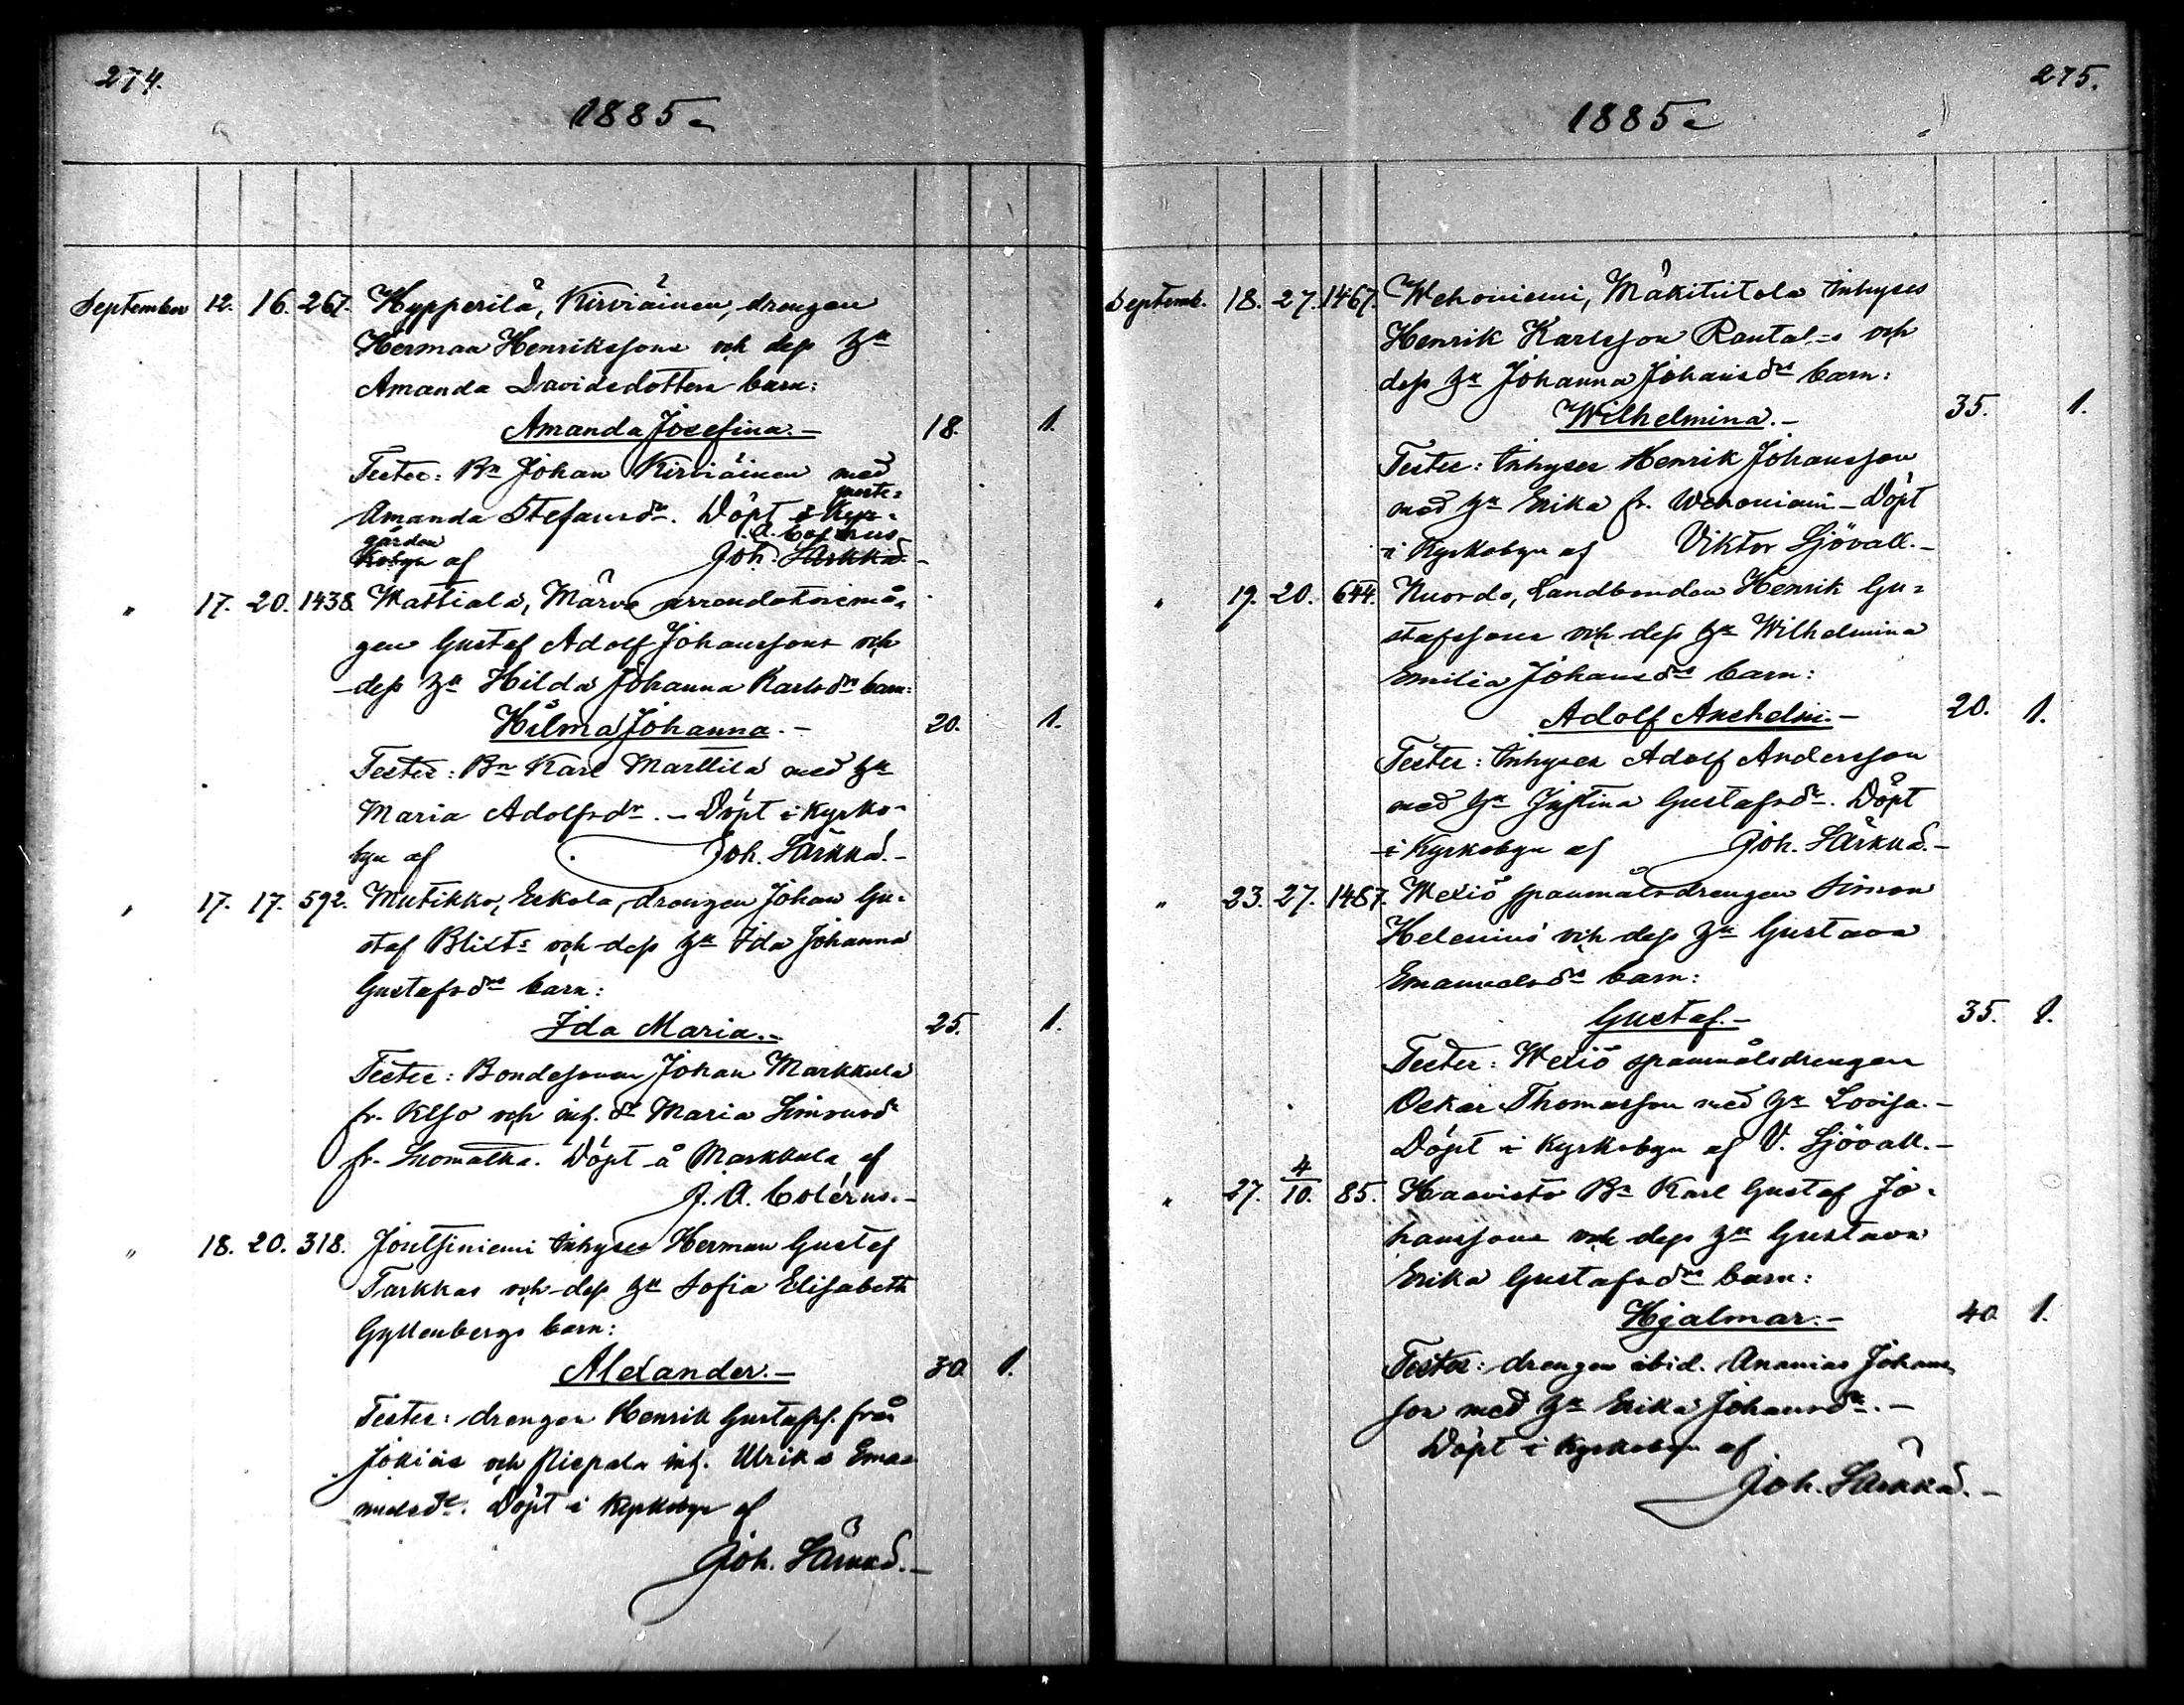 274.
1885.
September 12. 16. 267. Hypperilä, Kirviäinen, drengen
Herman Henrikssons och dess h:u
Amanda Davidsdotters barn:
Amanda Josefina.— 18. 1.
Testes: B:n Johan Kirviäinen med
Amanda Stefansd:r. Döpt i Kyr-
preste-
gården
kobyn af Joh. Särkkä.—
" 17. 20. 1438. Mattiala, Märvä arrendatorsmå-
gen Gustaf Adolf Johanssons och
dess h:u Hilda Johanna Karlsd:rs barn:
Hilma Johanna.— 20. 1.
Testes: B:n Karl Marttila med h:u
Maria Adolfsd:r.— Döpt i Kyrko-
byn af Joh. Särkkä.—
" 17. 17. 592. Mutikko, Eskola, drengen Johan Gu-
staf Blists och dess h:u Ida Johanna
Gustafsd:rs barn:
Ida Maria.— 25. 1.
Testes: Bondesonen Johan Markkula
fr. och inh. d:r Maria Simonsd:r
fr. Suomatka. Döpt å Markkula af
J. A. Colérus.—
" 18. 20. 318. Jontsiniemi Inhyses Herman Gustaf
Tarkkas och dess h:u Sofia Elisabeth
Gyllenbergs barn:
Alexander.— 30. 1.
Testes: drengen Henrik Gustafss. från
Jokiäis och inh. Ulrika Ema-
nuelsd:r. Döpt i Kyrkobyn af
Joh. Särkkä.—
275.
1885.
Septemb. 18. 27. 1467. Wehoniemi, Mäkitiitola Inhyses
Henrik Karlsson Rantal-s och
dess h:u Johanna Johansd:rs barn:
Wilhelmina.— 35. 1.
Testes: Inhyses Henrik Johansson
med h:u Erika fr. Wehoniemi— Döpt
i Kyrkobyn af Viktor Sjövall.—
" 19. 20. 644. Nuordo, Landbonden Henrik Gu-
stafssons och dess h:u Wilhelmina
Emilia Johansd:rs barn:
Adolf Anshelm.— 20. 1.
Testes: Inhyses Adolf Andersson
med h:u Justina Gustafsd:r. Döpt
i Kyrkobyn af Joh. Särkkä.—
" 23. 27. 1487. Wexiö spanmålsdrengen Simon
Helenius och dess h:u Gustava
Emanuelsd:rs barn:
Gustaf.— 35. 1.
Testes: Wexiö spanmålsdrengen
Oskar Thomasson med h:u Lovisa.—
Döpt i Kyrkobyn af V. Sjövall.—
" 27. 4/10. 85. Haavisto B:n Karl Gustaf Jo-
hanssons och dess h:u Gustava
Erika Gustafsd:rs barn:
Hjalmar.— 40. 1.
Testes: drengen ibid. Ananias Johans-
son med h:u Erika Johansd:r.—
Döpt i Kyrkobyn af
Joh. Särkkä.—